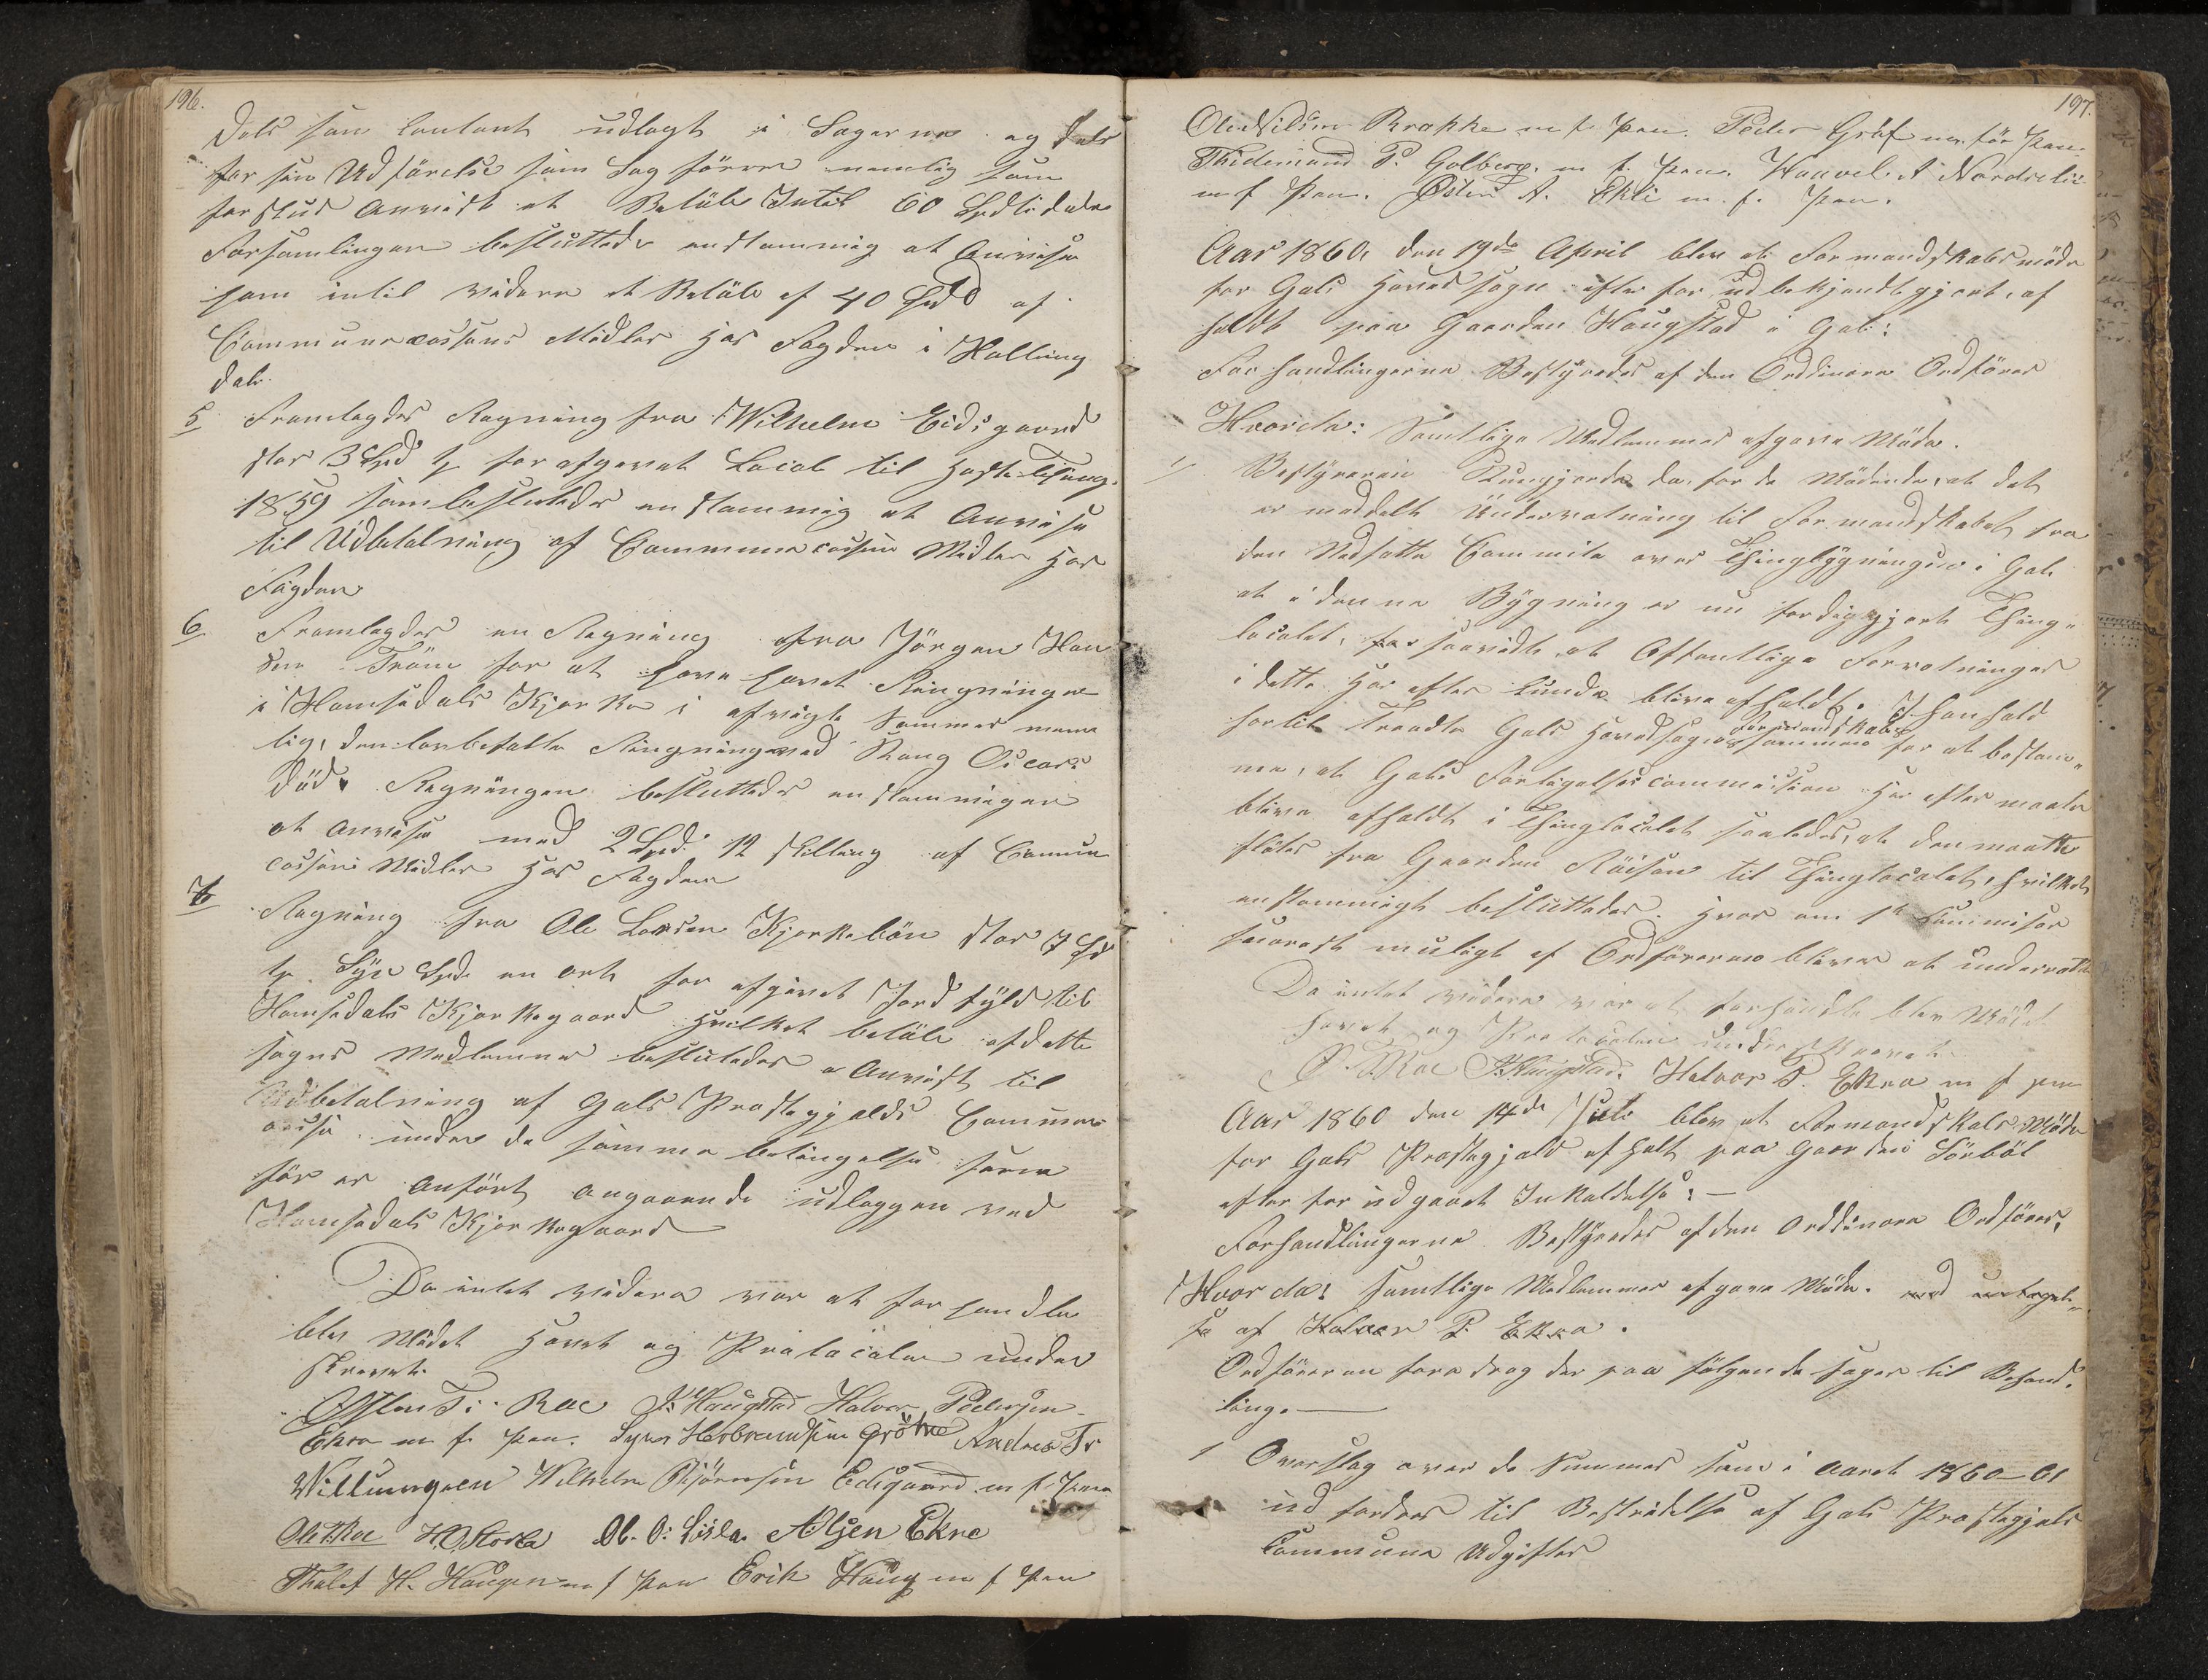 196.
dels som contant udlagt i Sagerne og dels
for sin Udførelse som Sagfører nemlig som
forskud anvist et Beløb Intil 60 Spdlr
Forsamlingen besluttede enstemmig at Anvise
ham intil videre et Beløb af 40 Spd af
Communecassens Midler hos Fogden i Halling
dal.
5 Fremlagdes Regning fra Wilhelm Eidsgaard
stor 3 Spd for afgivet Local til Høste Thing
1859 som besluttedes enstemmig at Anvise
til Udbetalning af Communecassens Midler hos
Fogden
6 Fremlagdes en Regning fra Jörgen Han
sen Tröim for at have havt Ringningen
i Hemsedals Kjerke i afvigte Sommer nem
lig, den lovbefalte Ringning ved Kong Oscars
Död. Regningen besluttedes enstemmigen
at anvise med 2 Spd. 12 skilling af Commune
cassens Midler hos Fogden
7 Regning fra Ole Larsen Kjerkebøen stor 7 Spd
Syv Spd. en ort for afgivet Jordfyld til
Hemsedals Kjerkegaard hvilket beløb af dette
sogns Medlemmer besluttedes Anvist til
Udbetalning af Gols Præstegjelds Commune
casse under de samme betingelser som
før er Anført angaaende udleggen ved
Hemsedals Kjerkegaard
Da intet videre var at forhandle
blev Mødet hævet og Protocolen under
skrevet.
Østen T. Roe K. Haugstad Halvor Pedersen
Ekra m f Pen. Syver Herbrandsen Grøtne Andres Tr
Villungen Wilhelm Bjørnsen Edsgaard m f Pen
Ole T. Roe H. O. Storla Ol. O. Lisla A Olsen Ekre
Tholef H. Haugen m f Pen Erik Haug m f Pen
197.
Ole Nilsen Brokke m f Pen. Peder Gråf m. før Pen
Thidemand P. Golberg. m f. Pen. Haavel A Nordrelie
m f Pen. Østen A. Ekli m. f. Pen.
Aar 1860, den 19de April blev et Formandskabsmöde
for Gols Hovedsogn efter forud bekjendtgjort, af
holdt paa Gaarden Haugstad i Gol:
Forhandlingerne Bestyredes af den Orddinere Ordfører
Hvorda: Samtlige Medlemmer afgave Møde.
1/ Bestyreren Kungjorde da for de Mødende, at det
er meddelt Undervetning til Formandskabet fra
den Nedsatte Commite over Thingbygningen i Gol
at i denne Bygning er nu ferdiggjort Thing-
localet, for saavidt at Offentlige Forretninger
i dette her efter kunde blive afholdt. I henhold
hertil traadte Gols Hovedsogns Formandskab sammen for at bestem-
me, at Gols Forligelsescommission her efter maate
blive afholdt i Thinglocalet saaledes, at den maatte
flttes fra Gaarden Röisen til Thinglocalet, hvilket
enstemmigt besluttedes. Hvor om Commisær
snarest muligt af Ordföreren bliver at underrette
Da intet videre var at forhandle blev Mödet
hævet og Protocolen underskrevet
Ø. Roe K. Haugstad. Halvor P. Ekra m f pen
Aar 1860 den 14de Juli blev et Formandskabs Møde
for Gols Præstegjeld afholt paa Gaarden Sörböl
efter forudgaaet Inkaldelse: —
Forhandlingerne Bestyredes af den Orddinere Ordfører,
Hvorda: samtlige Medlemmer afgave Møde. med untagel-
se af Halvor P. Ekra.
Ordføreren foredrog der paa følgende sager til Behand-
ling. —
1 Overslag over de Summer som i Aaret 1860-61
udfordres til Bestridelse af Gols Præstegjels
Commune Udgifter